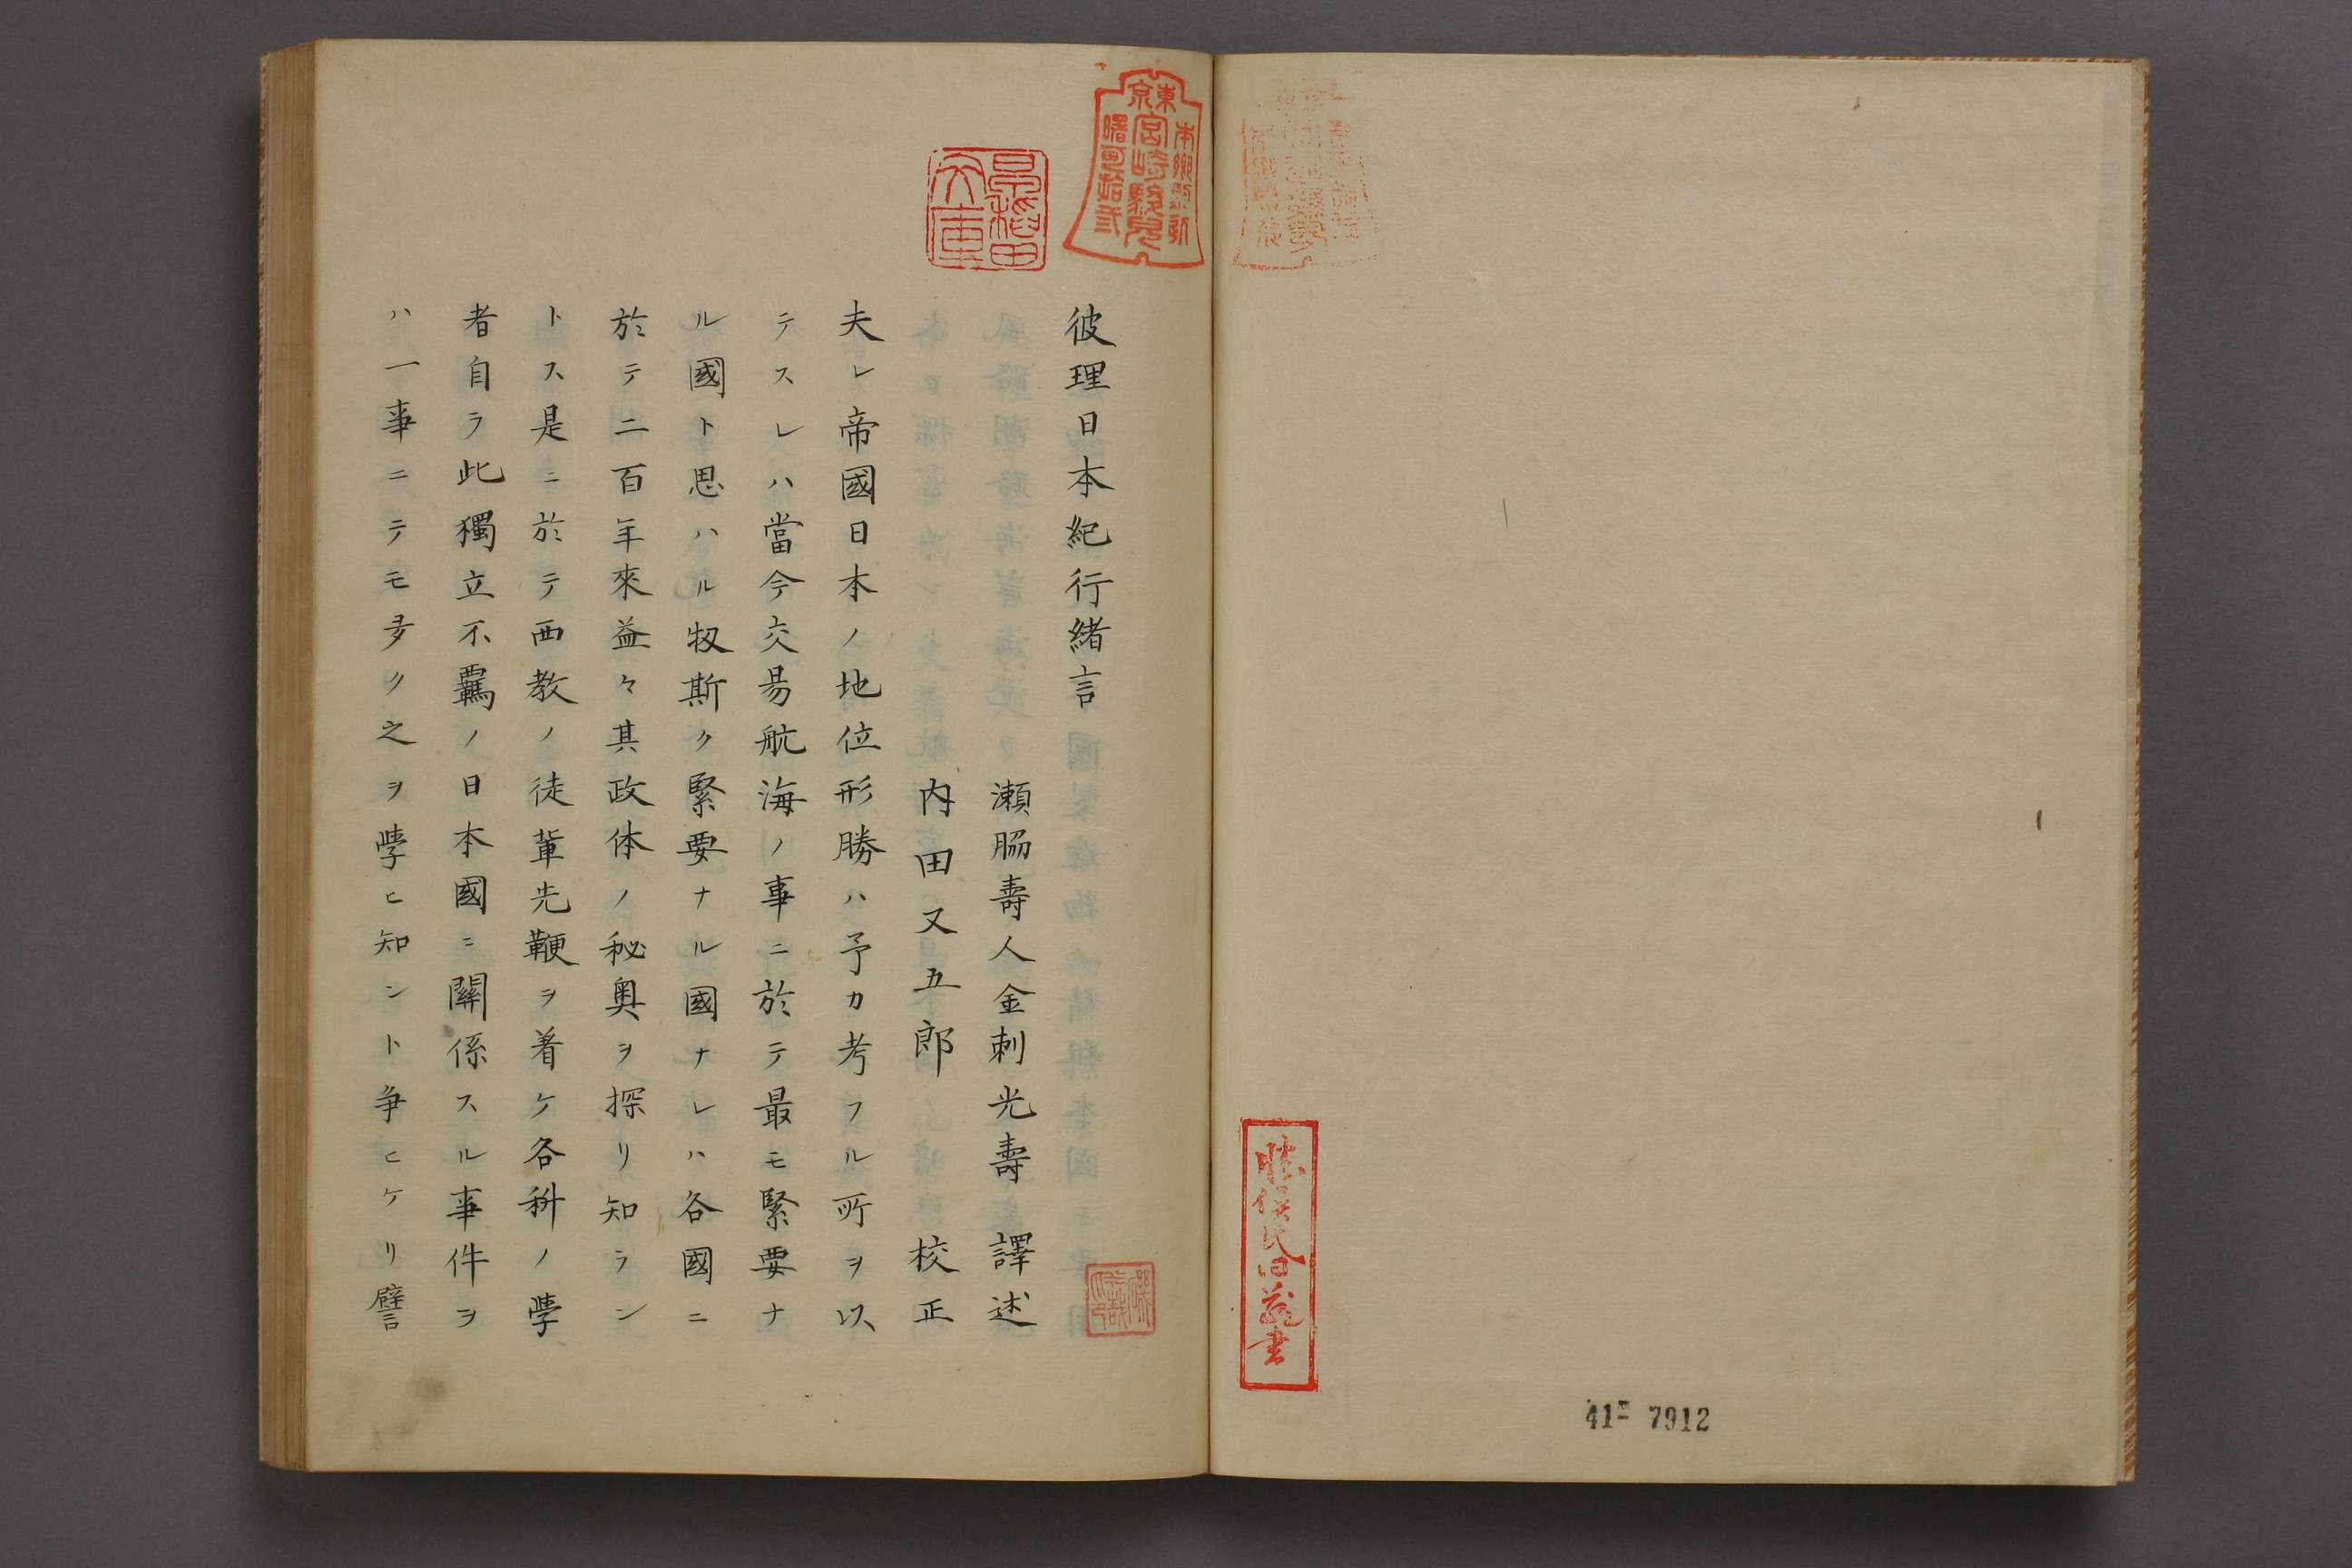 彼理日本紀行緒言
瀬脇壽人金刺光壽 譯述
内田又五郎 校正
夫レ帝國日本ノ地位形勝ハ予カ考フル所ヲ以
テスレハ當今交易航海ノ事ニ於テ最モ緊要ナ
ル國ト思ハル扨斯ク緊要ナル國ナレハ各國ニ
於テ二百年來益々其政体ノ秘奥ヲ探リ知ラン
トス是ニ於テ西教ノ徒輩先鞭ヲ着ケ各科ノ學
者自ラ此獨立不羈ノ日本國ニ關係スル事件ヲ
ハ一事ニテモ多ク之ヲ學ヒ知ント争ヒケリ譬
東京
本郷
宮崎駿兒
曙町拾弐
文庫
勝
蔵書
41 7912